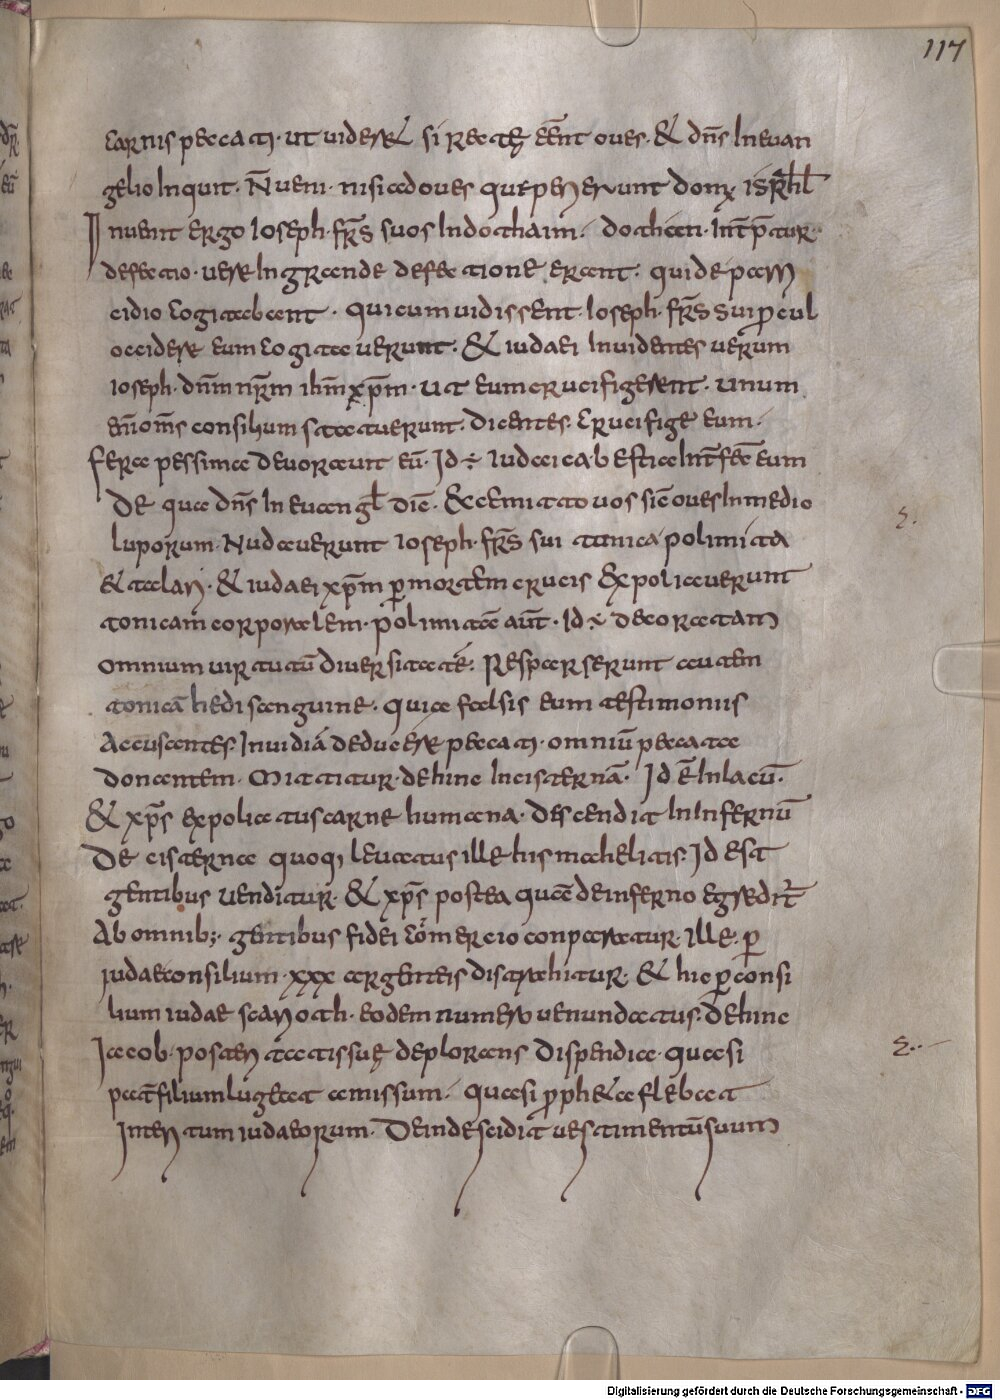 117
carnis peccati· ut uideret si recte eēnt oues· & dn̄s In euan
gelio Inquit· N̄ ueni· nisi ad oues que perierunt domꝰ isrl̄
Inuenit ergo Ioseph· fr̄s suos In dothaim· dothaen· Int̄p̄tur
defectio· uere In grande defectione erant· qui de parri
cidio cogitabant· Qui cum uidissent· Ioseph· fr̄s sui ꝓcul
occidere eum cogitauerunt· & iudaei Inuidentes uerum
ioseph· dn̄m nr̄m ihm̄ xp̄m· ut eum crucifigerent· unum
em̄ om̄s consilium statuerunt· dicentes· crucifige eum·
fera pessima deuorauit eū· Id ÷ iudaica bestia Int̄fec̄ eum
De qua dn̄s In euangl̄ dic̄· Ecce mitto uos sic̄ oues In medio
luporum· Nudauerunt ioseph· fr̄s sui tunica polimita
& talari· & iudaei xp̄m ꝑ mortem crucis expoliauerunt
tonicam corporalem· polimitā aūt· Id ÷ decoratam
omnium uirtutū diuersitatē· Resparserunt autem
tonicā hedi sanguine· Quia falsis eum testimoniis
Accusantes· Inuidiā deduxere peccati· omniū peccata
donantem· Mittitur· dehinc In cisternā· Id ē In lacū·
& xp̄s expoliatus carne humana· descendit In Infernū
De cisterna quoq, leuatus ille hismahelitis· Id est
gentibus uenditur· & xp̄s postea quā de inferno egredit̄
Ab omnib;· gentibus fidei cōmercio conparatur· Ille· ꝑ
iudae consilium· xxx argenteis distrahitur· & hic ꝑ consi
lium iudae scarioth· eodem numero uenundatus· dehinc
Iacob· posteritatis suae deplorans dispendia· quasi
pat̄ filium lugebat amissum· Quasi ꝓpheta flebat
Interitum iudaeorum· Deinde scidit uestimentū suum